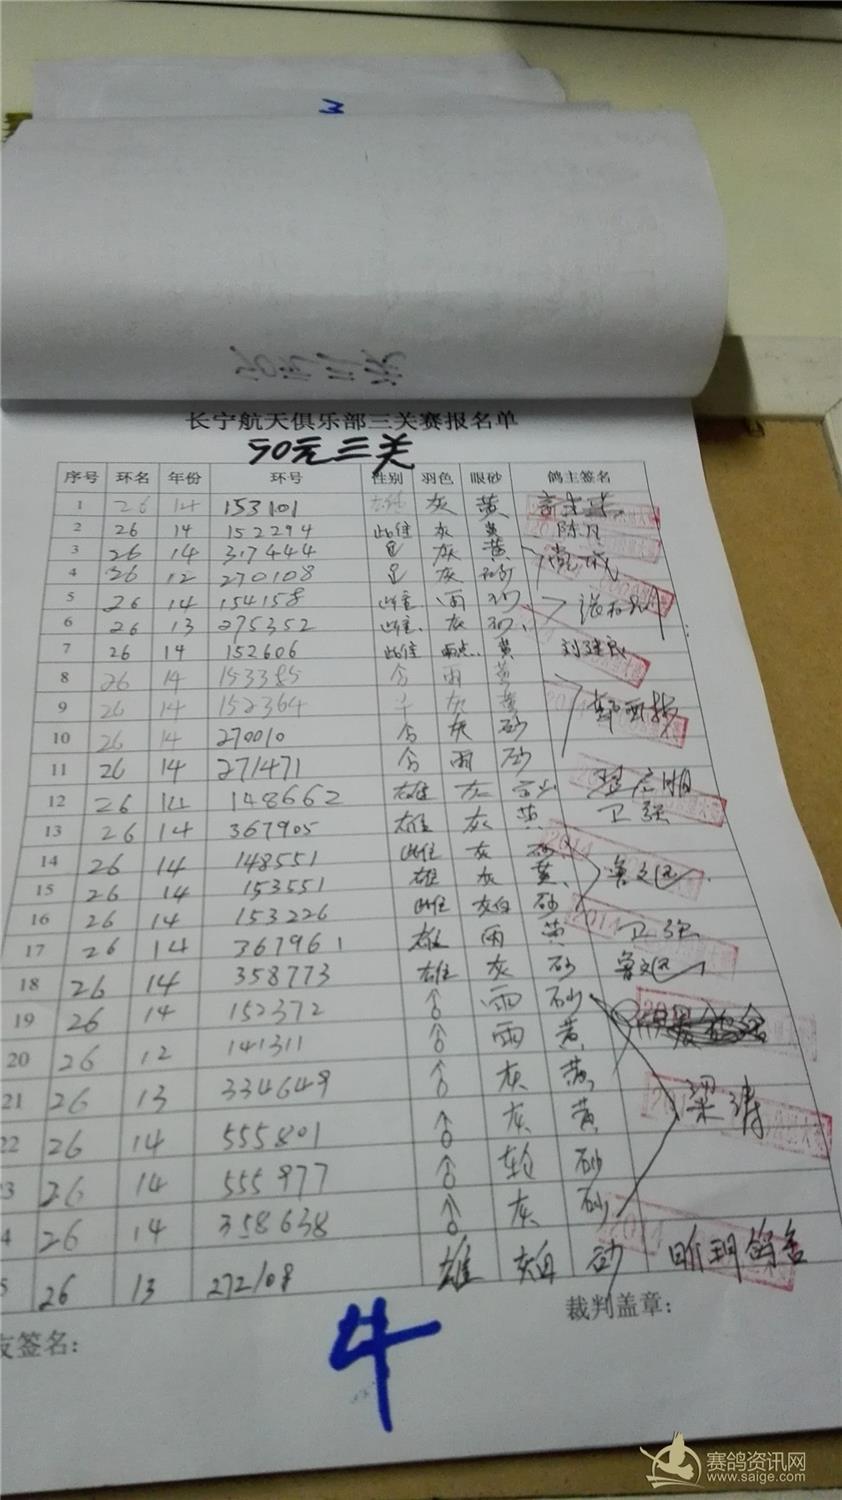 3
长宁航天俱乐部三关赛报名单
50元三关
序号 环名 年份 环号 性别 羽色 眼砂 鸽主签名
1 26 14 153101 雄 灰 黄
2 26 14 152294 雌 灰 黄 陈凡
3 26 14 317444 灰 黄
4 26 12 270108 灰 砂
5 26 14 154158 雌 雨 砂
6 26 13 275352 雌 灰 砂
7 26 14 152606 雌 雨点 黄 刘继良
8 26 14 153385 雨 黄
9 26 14 152364 灰 黄
10 26 14 270010 灰 砂
11 26 14 271471 雨 砂
12 26 14 148662 雄 灰
13 26 14 367905 雄 灰 黄 卫强
14 26 14 148551 雌 灰 砂
15 26 14 153551 雄 灰 黄 鲁文
16 26 14 153226 雌 灰白 砂
17 26 14 367961 雄 雨 黄 卫强
18 26 14 358773 雄 灰 砂 鲁文
19 26 14 152372 ♂ 雨 砂
20 26 12 141311 ♂ 雨 黄
21 26 13 334649 ♂ 灰 黄 梁涛
22 26 14 555801 ♂ 灰 黄
3 26 14 555977 ♂ 轮 砂
4 26 14 358638 ♂ 灰 砂
5 26 13 272108 雄 灰白 砂 昕玥鸽舍
友签名: 裁判盖章:
4
赛鸽资讯网
www.saige.com